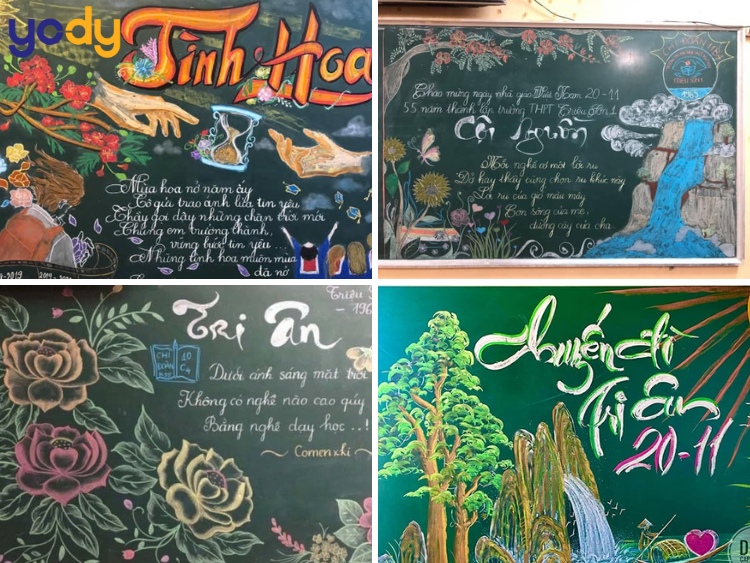 yody
Tinh Hoa
Mùa hoa nở năm ấy
Cô gửi trao ánh lửa tin yêu
Thầy gợi dậy những chân trời mới
Chúng em trưởng thành,
vững bước tin yêu...
Những tinh hoa muôn mùa
đã nở
2019
Chào mừng ngày nhà giáo Việt Nam 20-11
55 năm thành lập trường THPT Triệu Sơn 1
Cội Nguồn
Mỗi nghề có một lời ru
Dở hay thầy cũng chọn ru khúc này
Lời ru của gió màu mây
Con sông của mẹ,
đường cày của cha
Triệu
196
Tri Ân
CHI
ĐOÀN
10
C4
Dưới ánh sáng mặt trời
Không có nghề nào cao quý
Bằng nghề dạy học..!
~ Comenxki ~
Chuyến đò
Tri Ân
20-11